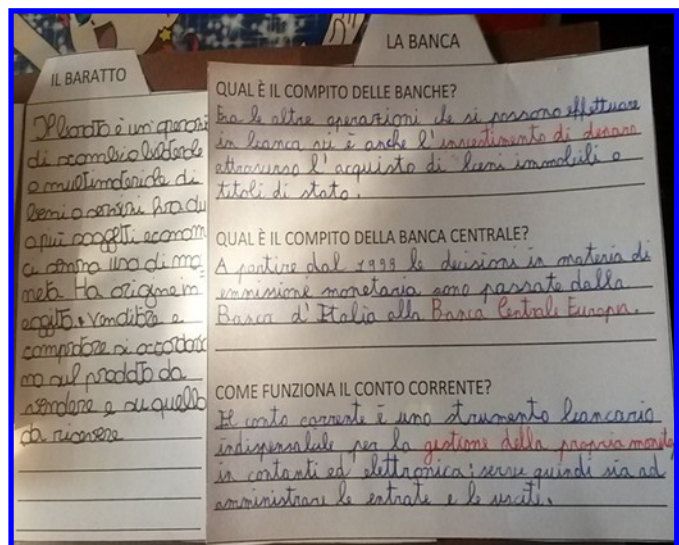 IL BARATTO
Il baratto è un'operazi
di scambio bilaterale
o multilaterale di
beni o servizi fra du
o più soggetti econom
ci senza uso di mo
neta. Ha origine in
egitto. Venditore e
compratore si accordan
no sul prodotto da
vendere e su quello
da ricevere
LA BANCA
QUAL È IL COMPITO DELLE BANCHE?
Fra le altre operazioni che si possono effettuare
in banca vi è anche l'investimento di denaro
attraverso l'acquisto di beni immobili o
titoli di stato.
QUAL È IL COMPITO DELLA BANCA CENTRALE?
A partire dal 1999 le decisioni in materia di
emmissione monetaria sono passate dalla
Banca d'Italia alla Banca Centrale Europea.
COME FUNZIONA IL CONTO CORRENTE?
Il conto corrente è uno strumento bancario
indispensabile per la gestione della propria moneta
in contanti ed elettronica; serve quindi sia ad
amministrare le entrate e le uscite.